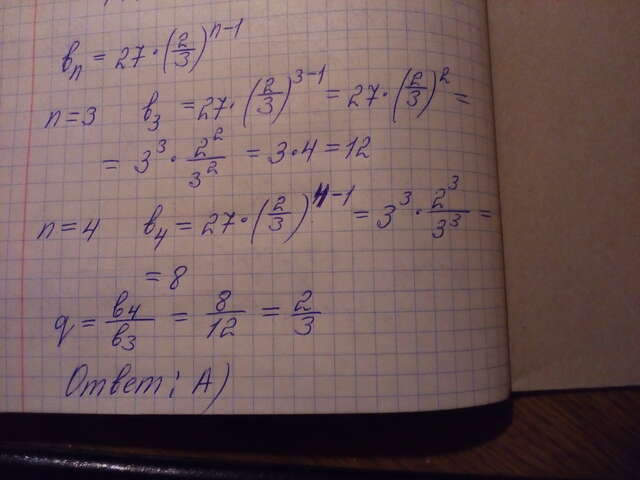 bₙ = 27·(2/3)ⁿ⁻¹
n=3 b₃ = 27·(2/3)³⁻¹ = 27·(2/3)² =
= 3³·2²/3² = 3·4 = 12
n=4 b₄ = 27·(2/3)⁴⁻¹ = 3³·2³/3³ =
= 8
q = b₄/b₃ = 8/12 = 2/3
Ответ: А)